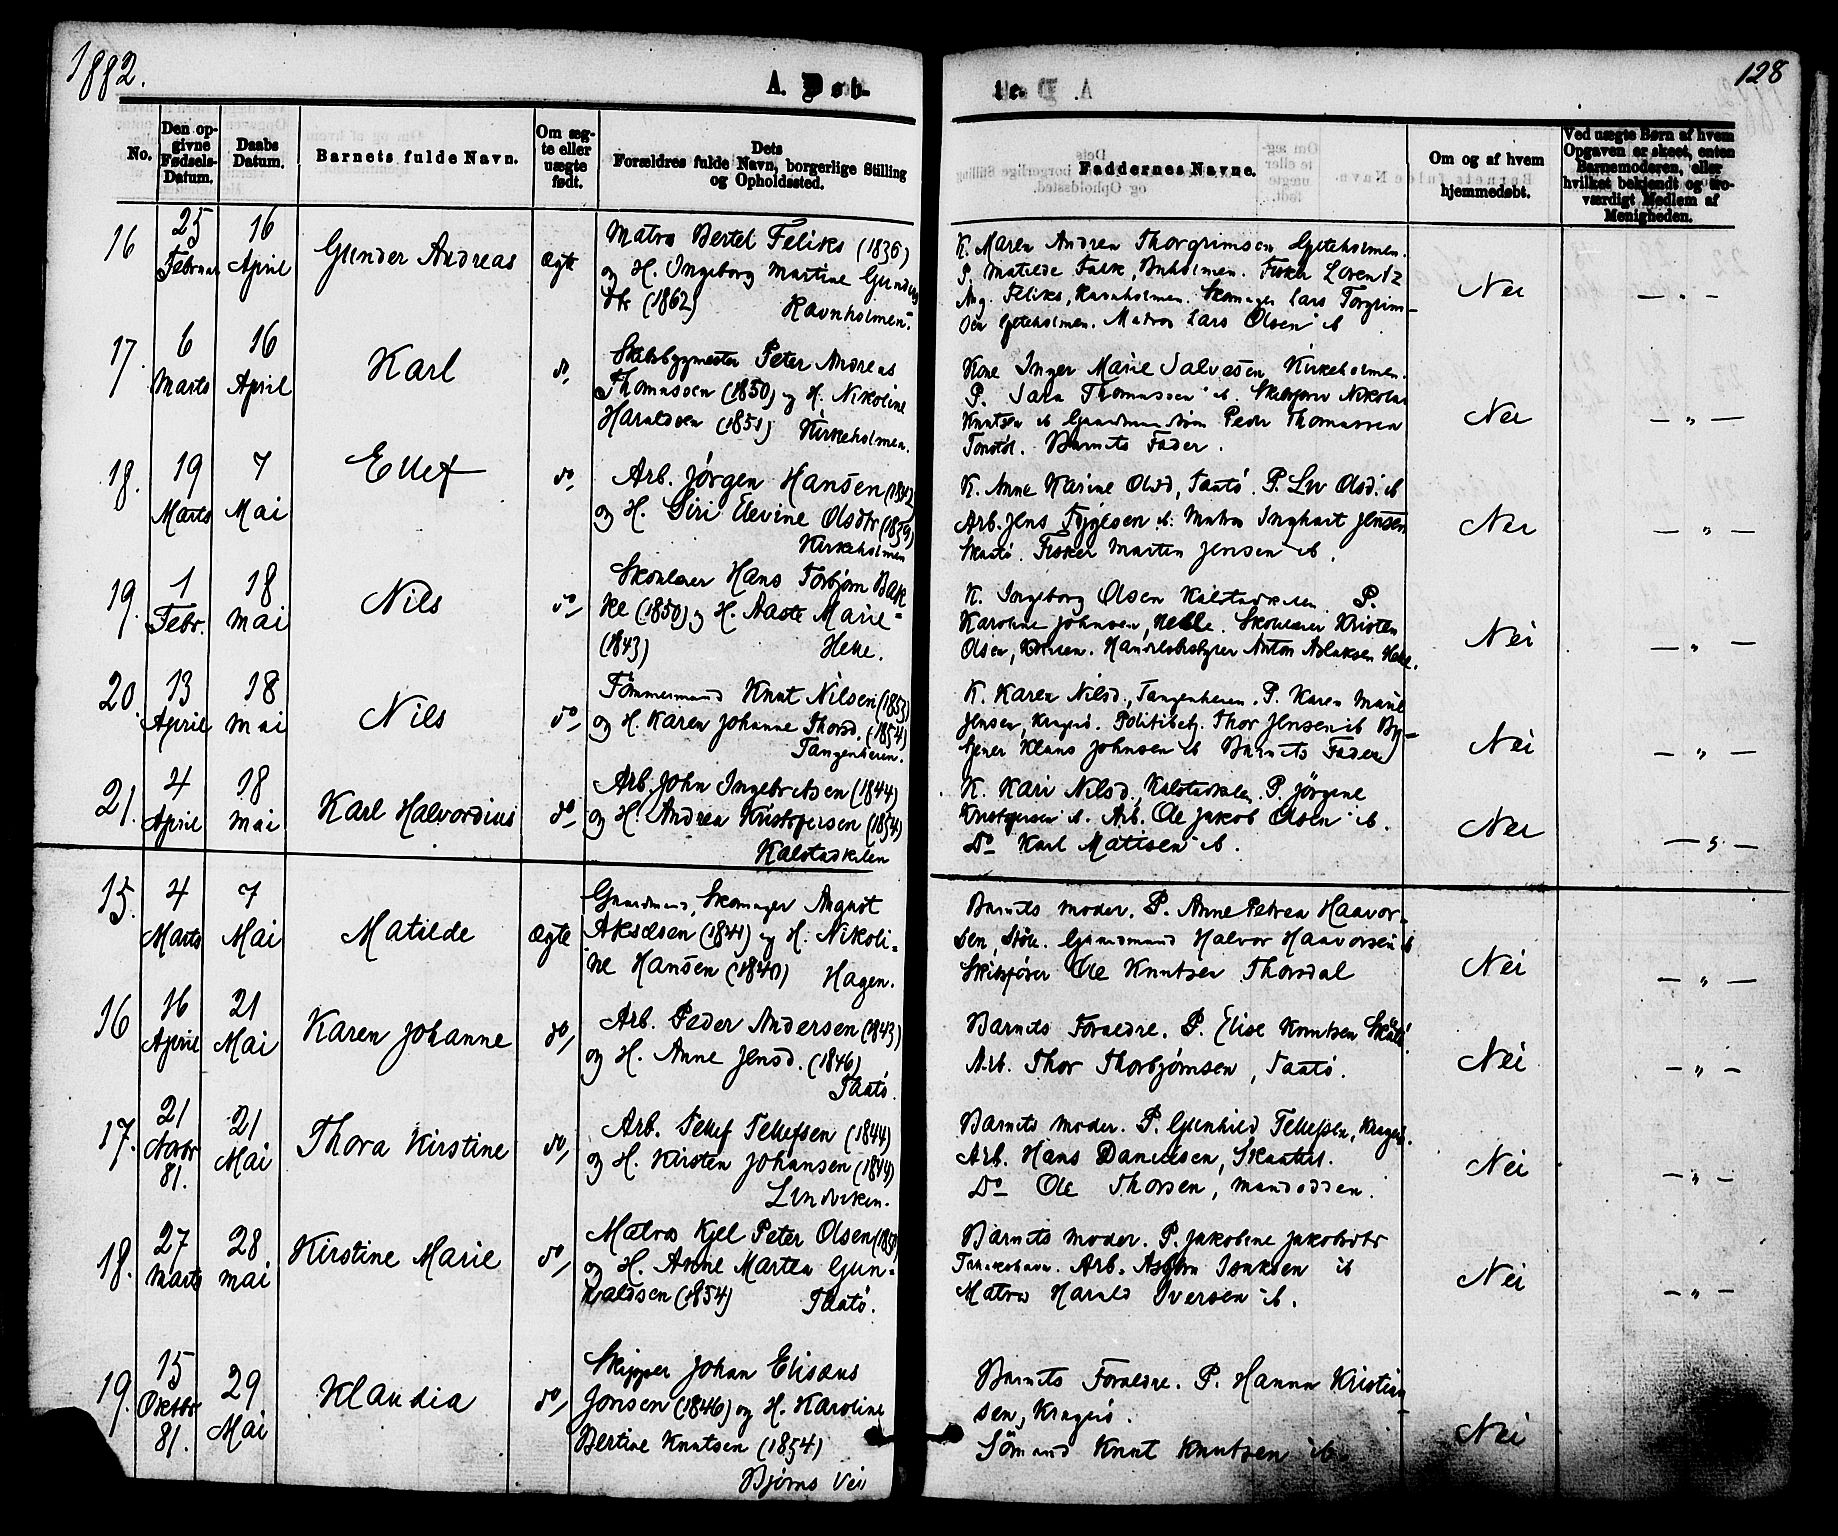 1882.
A. Døb-
te.
128
No.
Den op-
givne
Fødsels-
Datum.
Daabs
Datum.
Barnets fulde Navn.
Om æg-
te eller
uægte
født.
Dets
Forældres fulde Navn, borgerlige Stilling
og Opholdssted.
Faddernes Navne.
Om og af hvem
hjemmedøbt.
Ved uægte Børn af hvem
Opgaven er skeet, enten
Barnemoderen, eller
hvilket bekjendt og tro-
værdigt Medlem af
Menigheden.
16
25
Februar
16
April
Gunder Andreas
Ægte
Matros Bertel Feliks (1836)
og H. Ingeborg Martine Gunders
dtr (1862) Ravnholmen.
K. Maren Andrea Thorgrimsen Gjeteholmen.
P. Matilde Falk, . Fisker Lorentz
Aug. Feliks, Ravnholmen. Skomager Lars Torgrim-
sen Gjeteholmen. Matros Lars Olsen ib
Nei
— " —
17.
6
Marts
16
April
Karl
do,
Skibsbygmester Peter Andreas
Thomassen (1850) og H. Nikoline
Haraldsen (1851) Kirkeholmen.
Kone Inger Marie Salvesen Kirkeholmen.
P. Sara Thomassen ib. Nikolai
Knutsen ib Peder Thomassen
Barnets Fader.
Nei
— " —
18.
19
Marts
7
Mai
Ellef
do,
Arb. Jørgen Hansen (1842
og H. Siri Elevine Olsdtr (1859)
Kirkeholmen
K. Anne Karine Olsd, Taatø. P. Liv Olsd. ib
Arb. Jens ib. Matros Inghart Jensen
Skaatø. Fisker Martin Jensen ib.
Nei
— " —
19.
1
Febr.
18
Mai
Nils
do,
Skolelærer Hans Torbjørn Bak
ke (1850) og H. Aaste Marie
(1843) Helle.
K. Ingeborg Olsen Kalstadkilen. P.
Karoline Johnsen, Helle. Skolelærer Kristen
Olsen, . Handelsbestyrer Anton Aslaksen Helle.
Nei
— " —
20.
13
April
18
Mai
Nils
do,
Tømmermand Knut Nilsen (1853)
og H. Karen Johanne Thorsd. (1854)
Tangenheien.
K. Karen Nilsd., Tangenheien. P. Karen Marie
Jensen, Kragerø. Politibetj. Thor Jensen ib By-
tjener Klaus Johnsen ib Barnets Fader
Nei
— " —
21.
4
April
18
Mai
Karl Halvordius
do,
Arb. John Ingebretsen (1844)
og H. Andrea Kristofersen (1854)
Kalstadkilen
K. Kari Nilsd, Kalstadkilen. P. Jörgine
Kristofersen ib. Arb. Ole Jakob Olsen ib.
Do Karl Matisen ib.
Nei
— " —
15.
4
Marts
7
Mai
Matilde
Ægte
Gaardmand, Skomager August
Akselsen (1841) og H. Nikoli-
ne Hansen (1840) Hagen.
Barnets Moder. P. Anne Petrea Haavor-
sen, Støle. Gaardmand Halvor Haavorsen ib
Skibsfører Ole Knutsen Thorsdal
Nei
— " —
16
16
April
21
Mai
Karen Johanne
do,
Arb. Peder Andersen (1843)
og H. Anne Jensd. (1846)
Taatø.
Barnets Forældre. P. Elise Knutsen Skaatø.
Arb. Thor Thorbjørnsen, Taatø.
Nei
— " —
17.
21
Novbr
81.
21
Mai
Thora Kirstine
do,
Arb. Tellef Tellefsen (1844)
og H. Kirsten Johansen (1844)
Lindviken.
Barnets Moder. P. Gunhild Tellefsen, Kragerø.
Arb. Hans Danielsen, .
Do Ole Thorsen, Mandodden.
Nei
— " —
18.
27
Marts
28
Mai
Kirstine Marie
do,
Matros Kjel Peter Olsen
og H. Anne Martea Gun-
valdsen (1854) Taatø.
Barnets Moder. P. Jakobine Jakobsdtr
Arb. Asbjørn Isaksen ib
Matros Harald Iversen ib.
Nei
— " —
19.
15
Oktbr
81.
29
Mai
Klaudia
do,
Skipper Johan Elisæus
Jonsen (1846) og H. Karoline
Bertine Knutsen (1854)
Bjørns Vei
Barnets Forældre. P. Hanna Kristian
sen, Kragerø.
Sömand Knut Knutsen ib.
Nei